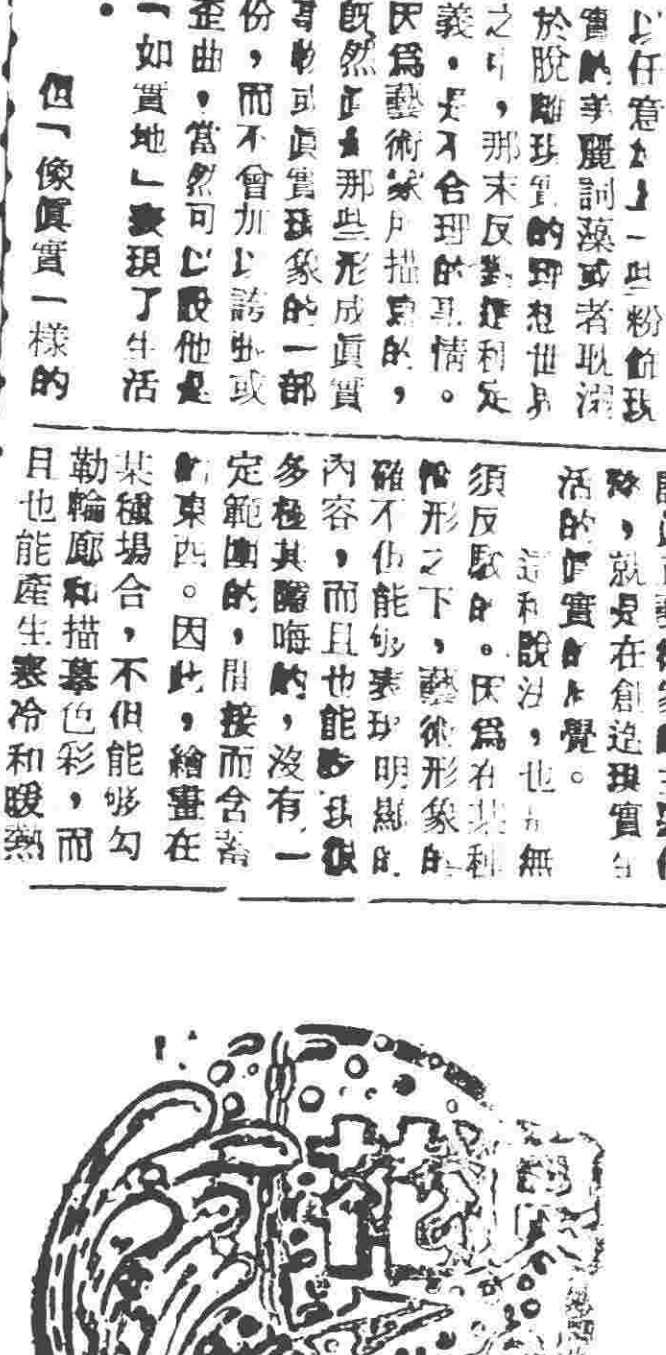 以任意加上一些粉飾現
實的華麗詞藻或者耽溺
於脫離現實的理想世界
之中，那末反對這種定
義，是不合理的事情。
因爲藝術家所描寫的，
既然正是那些形成眞實
事物或眞實現象的一部
份，而不會加以誇張或
歪曲，當然可以說他是
「如實地」表現了生活
。
但「像眞實一樣的
，就是在創造現實生
活的眞實的感覺。
這種說法，也無
須反駁的。因爲在某種
情形之下，藝術形象的
確不但能够表現明顯的
內容，而且也能够表現很
多極其隱晦的，沒有一
定範圍的，間接而含蓄
的東西。因此，繪畫在
某種場合，不但能够勾
勒輪廓和描摹色彩，而
且也能產生寒冷和暖熱
花果